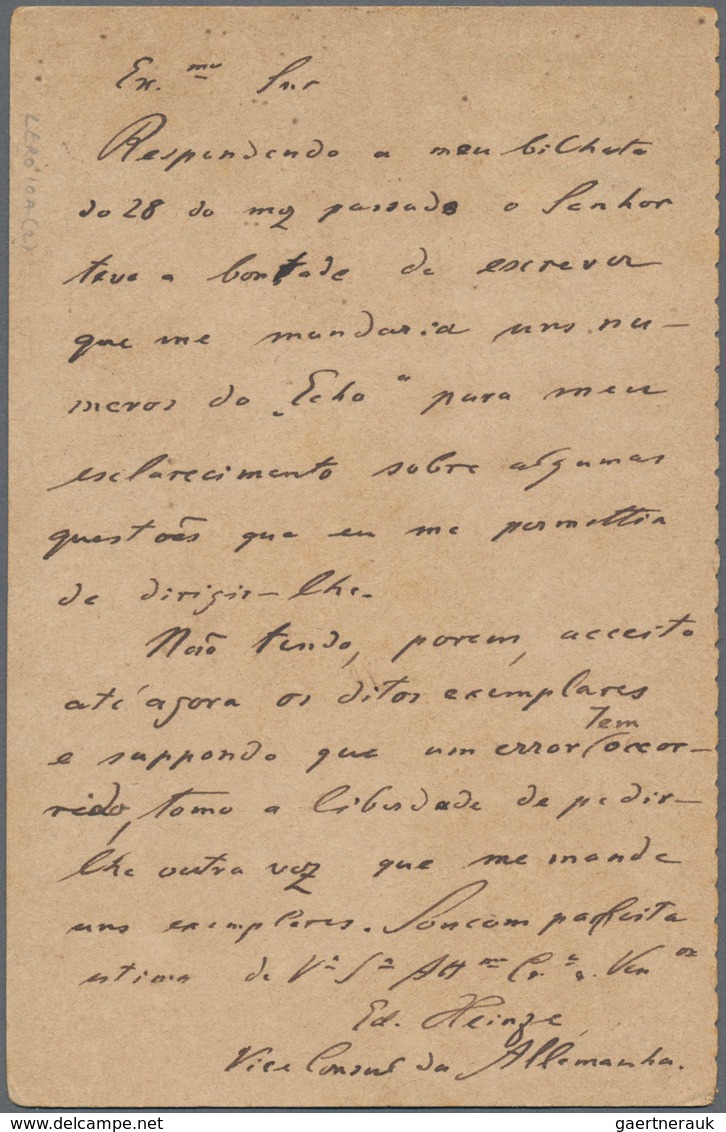 Ex.mo Snr
Respondendo a meu bilhete
do 28 do mez passado o Senhor
teve a bontade de escrever
que me mandaria uns nu-
meros do „Echo“ para meu
esclarecimento sobre algumas
questões que eu me permettia
de dirigir-lhe.
Não tendo, porem, acceito
até agora os ditos exemplares
e suppondo que um error tem occor-
rido, tomo a liberdade de pedir-
lhe outra vez que me mande
uns exemplares. Sou com perfeita
estima de Va Sa Attmo Cr.o e Ven or
Ed. Heinze,
Vice Consul da Allemanha.
LERO 10A(2)
gaertnerauk